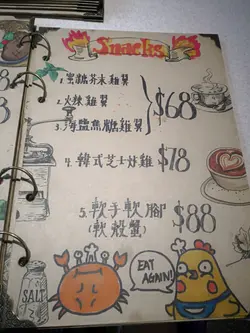 Snacks
1. 蜜糖芥末雞翼
2. 火辣雞翼
3. 海鹽焦糖雞翼
$68
4. 韓式芝士炸雞 $78
5. 軟手軟腳 $88
(軟殼蟹)
EAT
AGAIN!
SALT